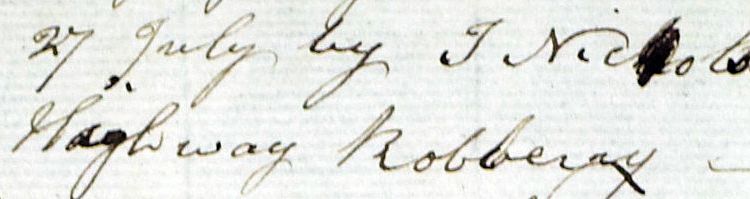 27 July by T Nichols
Highway Robberay